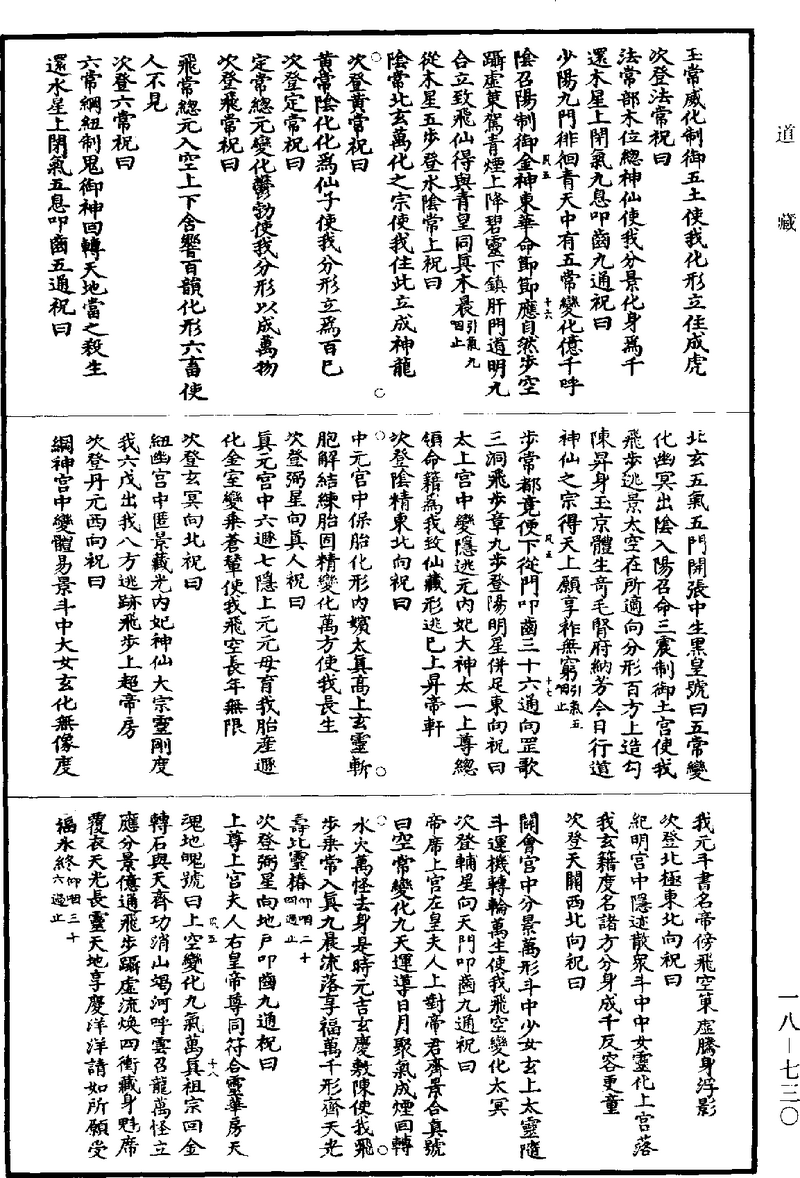 道藏
一八—七三〇
玉常威化制御五土使我化形立住成虎
次登法常祝曰
法常部木位總神仙使我分景化身為千
還木星上閉氣九息叩齒九通祝曰
少陽九門徘徊青天中有五常變化億千呼
陰召陽制御金神東華命節節應自然步空
躡虛策駕青煙上降碧靈下鎮肝門道明九
合立致飛仙得與青皇同真木晨引氣九咽止
從木星五步登水陰常上祝曰
陰常北玄萬化之宗使我住此立成神龍
次登黄常祝曰
黄常陰化化為仙子使我分形立為百巳
次登定常祝曰
定常總元變化鬱勃使我分形以成萬物
次登飛常祝曰
飛常總元入空上下含響百韻化形六畜使
人不見
次登六常祝曰
六常綱紐制鬼御神回轉天地當之殺生
還水星上閉氣五息叩齒五通祝曰
北玄五氣五門開張中生黑皇號曰五常變
化幽冥出陰入陽召命三震制御土宫使我
飛步逃景太空在所適向分形百方上造勾
陳昇身玉京體生奇毛腎府納芳今日行道
神仙之宗得天上願享祚無窮引氣五咽止
步常都竟便下從門叩齒三十六通向罡歌
三洞飛步章九步登陽明星併足東向祝曰
太上宫中變隱逃元内妃大神太一上尊總
領命籍為我致仙藏形逃巳上昇帝軒
次登陰精東北向祝曰
中元宫中保胎化形内嬪太真高上玄靈斬
胞解結練胎固精變化萬方使我長生
次登弼星向真人祝曰
真元宫中六遯七隱上元元母育我胎産遯
化金室變乘蒼輦使我飛空長年無限
次登玄冥向北祝曰
紐幽宫中匿景藏光内妃神仙大宗靈剛度
我六戊出我八方逃跡飛步上超帝房
次登丹元西向祝曰
綱神宫中變體易景斗中大女玄化無像度
我元斗書名帝傍飛空策虛騰身浮影
次登北極東北向祝曰
紀明宫中隱迹散衆斗中中女靈化上宫落
我玄籍度名諸方分身成千反容更童
次登天關西北向祝曰
關會宫中分景萬形斗中少女玄上太靈隨
斗運機轉輪萬生使我飛空變化太冥
次登輔星向天門叩齒九通祝曰
帝席上宫左皇夫人上對帝君齊景合真號
曰空常變化九天運導日月聚氣成煙回轉
水火萬怪去身是時元吉玄慶敷陳使我飛
步乘常入真九晨流落享福萬千形齊天光
壽比靈椿仰咽二十四過止
次登弼星向地戶叩齒九通祝曰
上尊上宫夫人右皇帝尊同符合靈華房天
魂地魄號曰上空變化九氣萬真祖宗回金
轉石與天齊功消山竭河呼雲召龍萬怪立
應分景億通飛步躡虛流煥四衝藏身魁席
覆衣天光長靈天地享慶洋洋請如所願受
福永終仰咽三十六過止